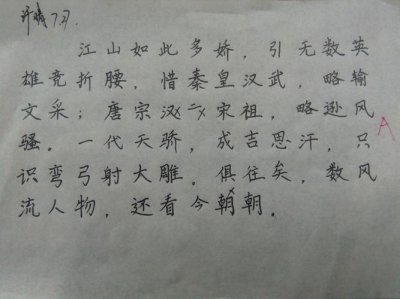 许曦 7.27.
江山如此多娇，引无数英
雄竞折腰，惜秦皇汉武，略输
文采；唐宗汉二宋祖，略逊风
骚。一代天骄，成吉思汗，只
识弯弓射大雕。俱往矣，数风
流人物，还看今朝朝。
A